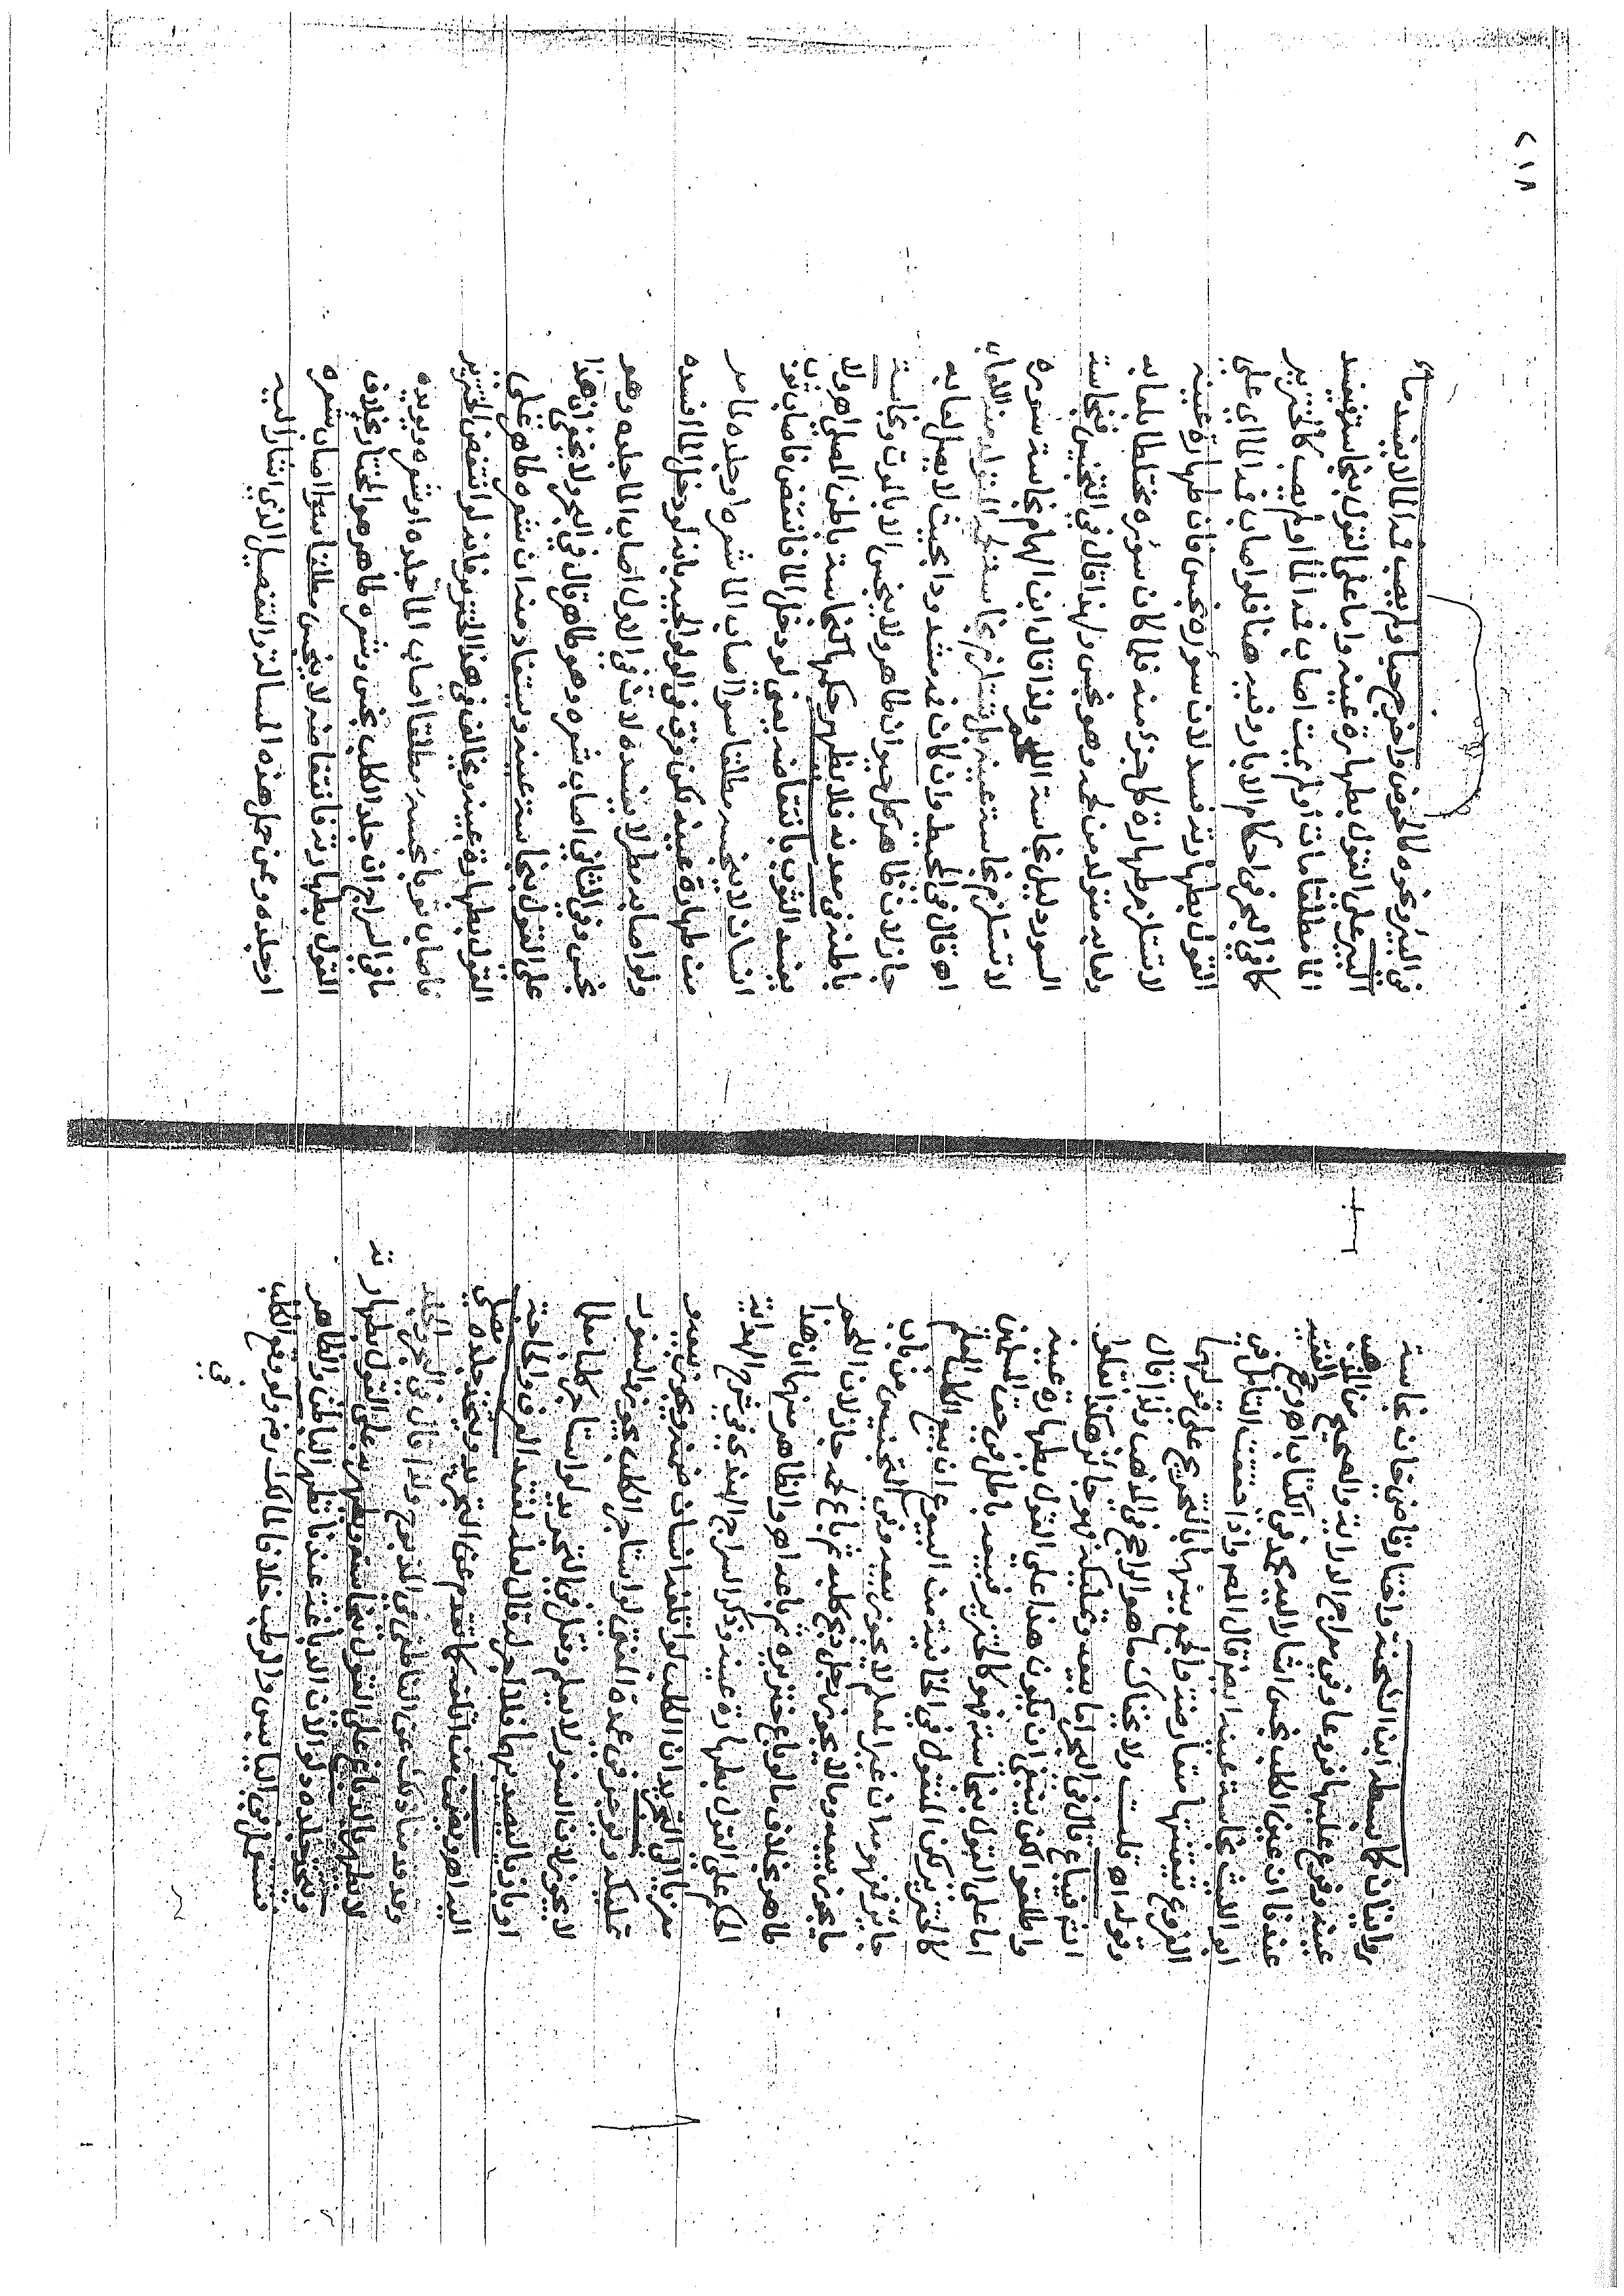 روايتان كما بسطه ابن الشحنة واختار قاضي خان نجاسة
عينه وفرع عليها فروعا وفي معراج الدراية والصحيح من المذهب
عندنا ان عين الكلب نجس اشار اليه محمد في الكتاب اهـ ورجح الفقيه
ابو الليث نجاسة عينه ايضا قال المص واذا حققت التأمل في
الفروع تيقنتها متعارضة والجمع بينهما بالتخريج على قوليهما
قلت ولا يخفاك ما هو الراجح في المذهب ولذا قال
فيباع قال في البحر اما بيعه وتمليكه فهو جائز هكذا نقلوا
واطلقوا لكن ينبغي ان يكون هذا على القول بطهارة عينه
اما على القول بنجاسته فهو كالخنزير فبيعه باطل في حق المسلمين
كالخنزير لكن المنقول في الخانية من البيوع ان بيع الكلب المعلم
جائز فمفهومه ان غير المعلم لا يجوز بيعه وفي التجنيس من باب
ما يجوز بيعه وما لا يجوز رجل ذبح كلبه ثم باع لحمه جاز لان اللحم
طاهر بخلاف ما لو باع خنزيره ثم باعه اهـ والظاهر منهما ان هذا
الحكم على القول بطهارة عينه وذكر السراج الهندي في شرح الهداية
معزيا الى التجريد ان الكلب لو اتلفه انسان ضمنه ويجوز بيعه و
تمليكه ويوجر وفي عمدة المفتي لو استاجر الكلب يجوز والسنور
لا يجوز لان السنور لا يعلم ونقل في التجريد لو استاجر كلبا معلما
او بازيا ليصيد بهما فلا اجر له قال لعله لفقد العرف والحاجة
اليه اهـ ويضمن من اتلفه كما تقدم عن التجريد ويتخذ جلده مصلى
وقد قدمنا ذلك عن الناطفي في المذبوح ولذا قال في البحر والجلد
لا يطهر بالدباغ على القول بنجاسته ويطهر به على القول بطهارته
ويتخذ جلده دلوا لان الدباغة عندنا تطهر الباطن والظاهر
فيستعمل في اليابس والرطب خلافا لمالك رضي ولو وقع الكلب
في
٢١٨
في البئر ونحوه كالحوض واخرج حيا ولم يصب فمه الماء لا يفسد ماء
البئر على القول بطهارة عينه واما على القول بنجاسته فيفسد
الماء مطلقا مات اولم يمت اصاب فمه الماء او لم يصب كالخنزير
كما في البحر في احكام الابار وقيد هنا فلو اصاب فمه الماء اي على
القول بطهارته فسد لان سؤره نجس فان طهارة عينه
لا تستلزم طهارة كل جزء منه فلما كان سؤره مختلطا بلعابه
ولعابه متولد من لحمه وهو نجس ولهذا قال في التجنيس نجاسة
السور دليل نجاسة اللحم ولذا قال ابن الهمام نجاسة سوره
لا تستلزم نجاسة عينه بل تستلزم نجاسة لحمه المتولد منه اللعاب
اهـ قال في المحيط وان كان فمه مشدودا بحيث لا يصل لعابه
جاز لان ظاهر كل حيوان طاهر ولا ينجس الا بالموت ونجاسة
باطنه في معدنه فلا يظهر حكمها كنجاسة باطن المصلي اهـ ولا
يفسد الثوب بانتفاضه يعني لو دخل الماء فانتفض فاصاب ثوب
انسان لا ينجسه مطلقا سواء اصاب الماء شعره او جلده كما مر
من طهارة عينه لكن فرق في الولوالجية بانه لو دخل الماء افسده
ولو اصابه مطر لا يفسده لان في الاول اصاب الماء جلده وهو
نجس وفي الثاني اصاب شعره وهو طاهر قال في البحر ولا يخفى ان هذا
على القول بنجاسة عينه ويستفاد منه ان شعره طاهر على
القول بطهارة عينه ويخالف في هذا الخنزير فانه لو انتفض الخنزير
فاصاب ثوبا نجسه مطلقا اصاب الماء جلده او شعره ويؤيده
ما في السراج ان جلد الكلب نجس وشعره طاهر هو المختار بخلاف
القول بطهارته فانتفاضه لا ينجس مطلقا سواء اصاب شعره
او جلده وعن جل هذه المسالة والتفصيل الذي اشار اليه